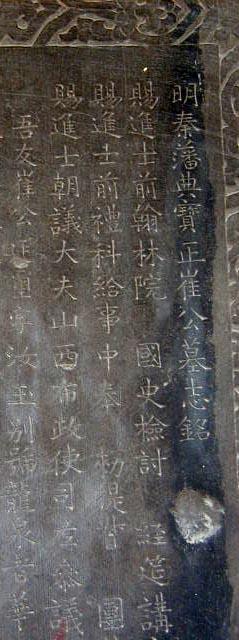 明秦藩典寶正崔公墓志銘
賜進士前翰林院 國史檢討 經筵講
賜進士前禮科給事中奉 勑提 團
賜進士朝議大夫山西布政使司左參議
吾友崔公 祖字汝 別號龍泉晉華